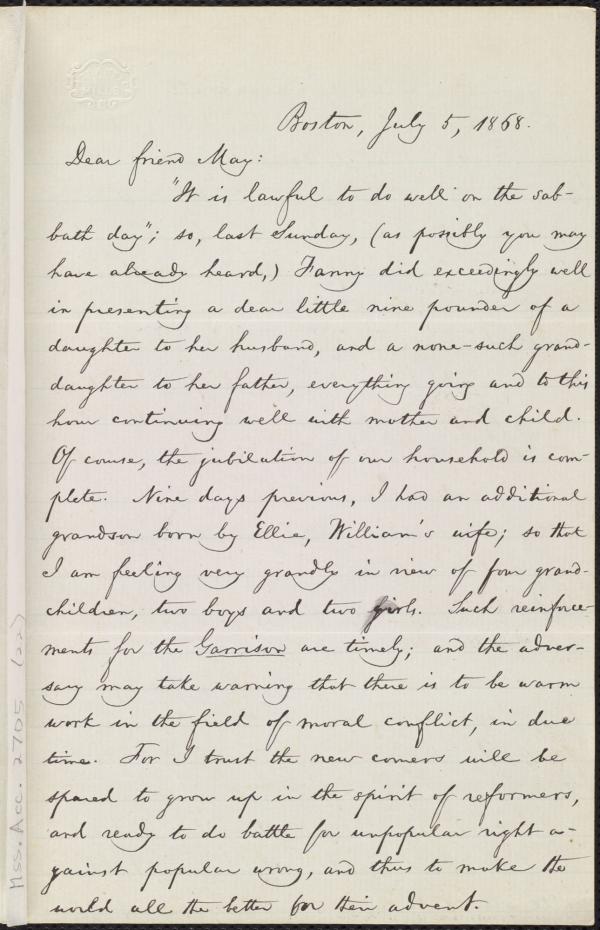 Boston, July 5, 1868.
Dear friend May:
"It is lawful to do well on the sab-
bath day"; so, last Sunday, (as possibly you may
have already heard,) Fanny did exceedingly well
in presenting a dear little nine pounder of a
daughter to her husband, and a none-such grand-
daughter to her father, everything going and to this
hour continuing well with mother and child.
Of course, the jubilation of our household is com-
plete. Nine days previous, I had an additional
grandson born by Ellie, William's wife; so that
I am feeling very grandly in view of four grand-
children, two boys and two girls. Such reinforce-
ments for the Garrison are timely; and the adver-
sary may take warning that there is to be warm
work in the field of moral conflict, in due
time. For I trust the new comers will be
spared to grow up in the spirit of reformers,
and ready to do battle for unpopular right a-
gainst popular wrong, and thus to make the
world all the better for their advent.
Mss. Acc. 2705 (22)